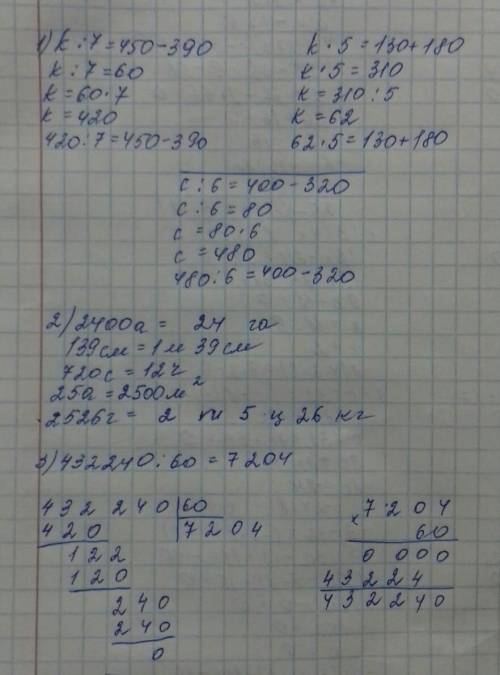 1) k : 7 = 450 - 390
k : 7 = 60
k = 60 · 7
k = 420
420 : 7 = 450 - 390
k · 5 = 130 + 180
k · 5 = 310
k = 310 : 5
k = 62
62 · 5 = 130 + 180
c : 6 = 400 - 320
c : 6 = 80
c = 80 · 6
c = 480
480 : 6 = 400 - 320
2) 2400а = 24 га
139см = 1 м 39 см
720с = 12ч
25а = 2500м²
2526г = 2 т 5 ц 26 кг
3) 432240 : 60 = 7204
432 240 | 60
420 7204
122
120
240
240
0
7204
× 60
0 000
43224
432240